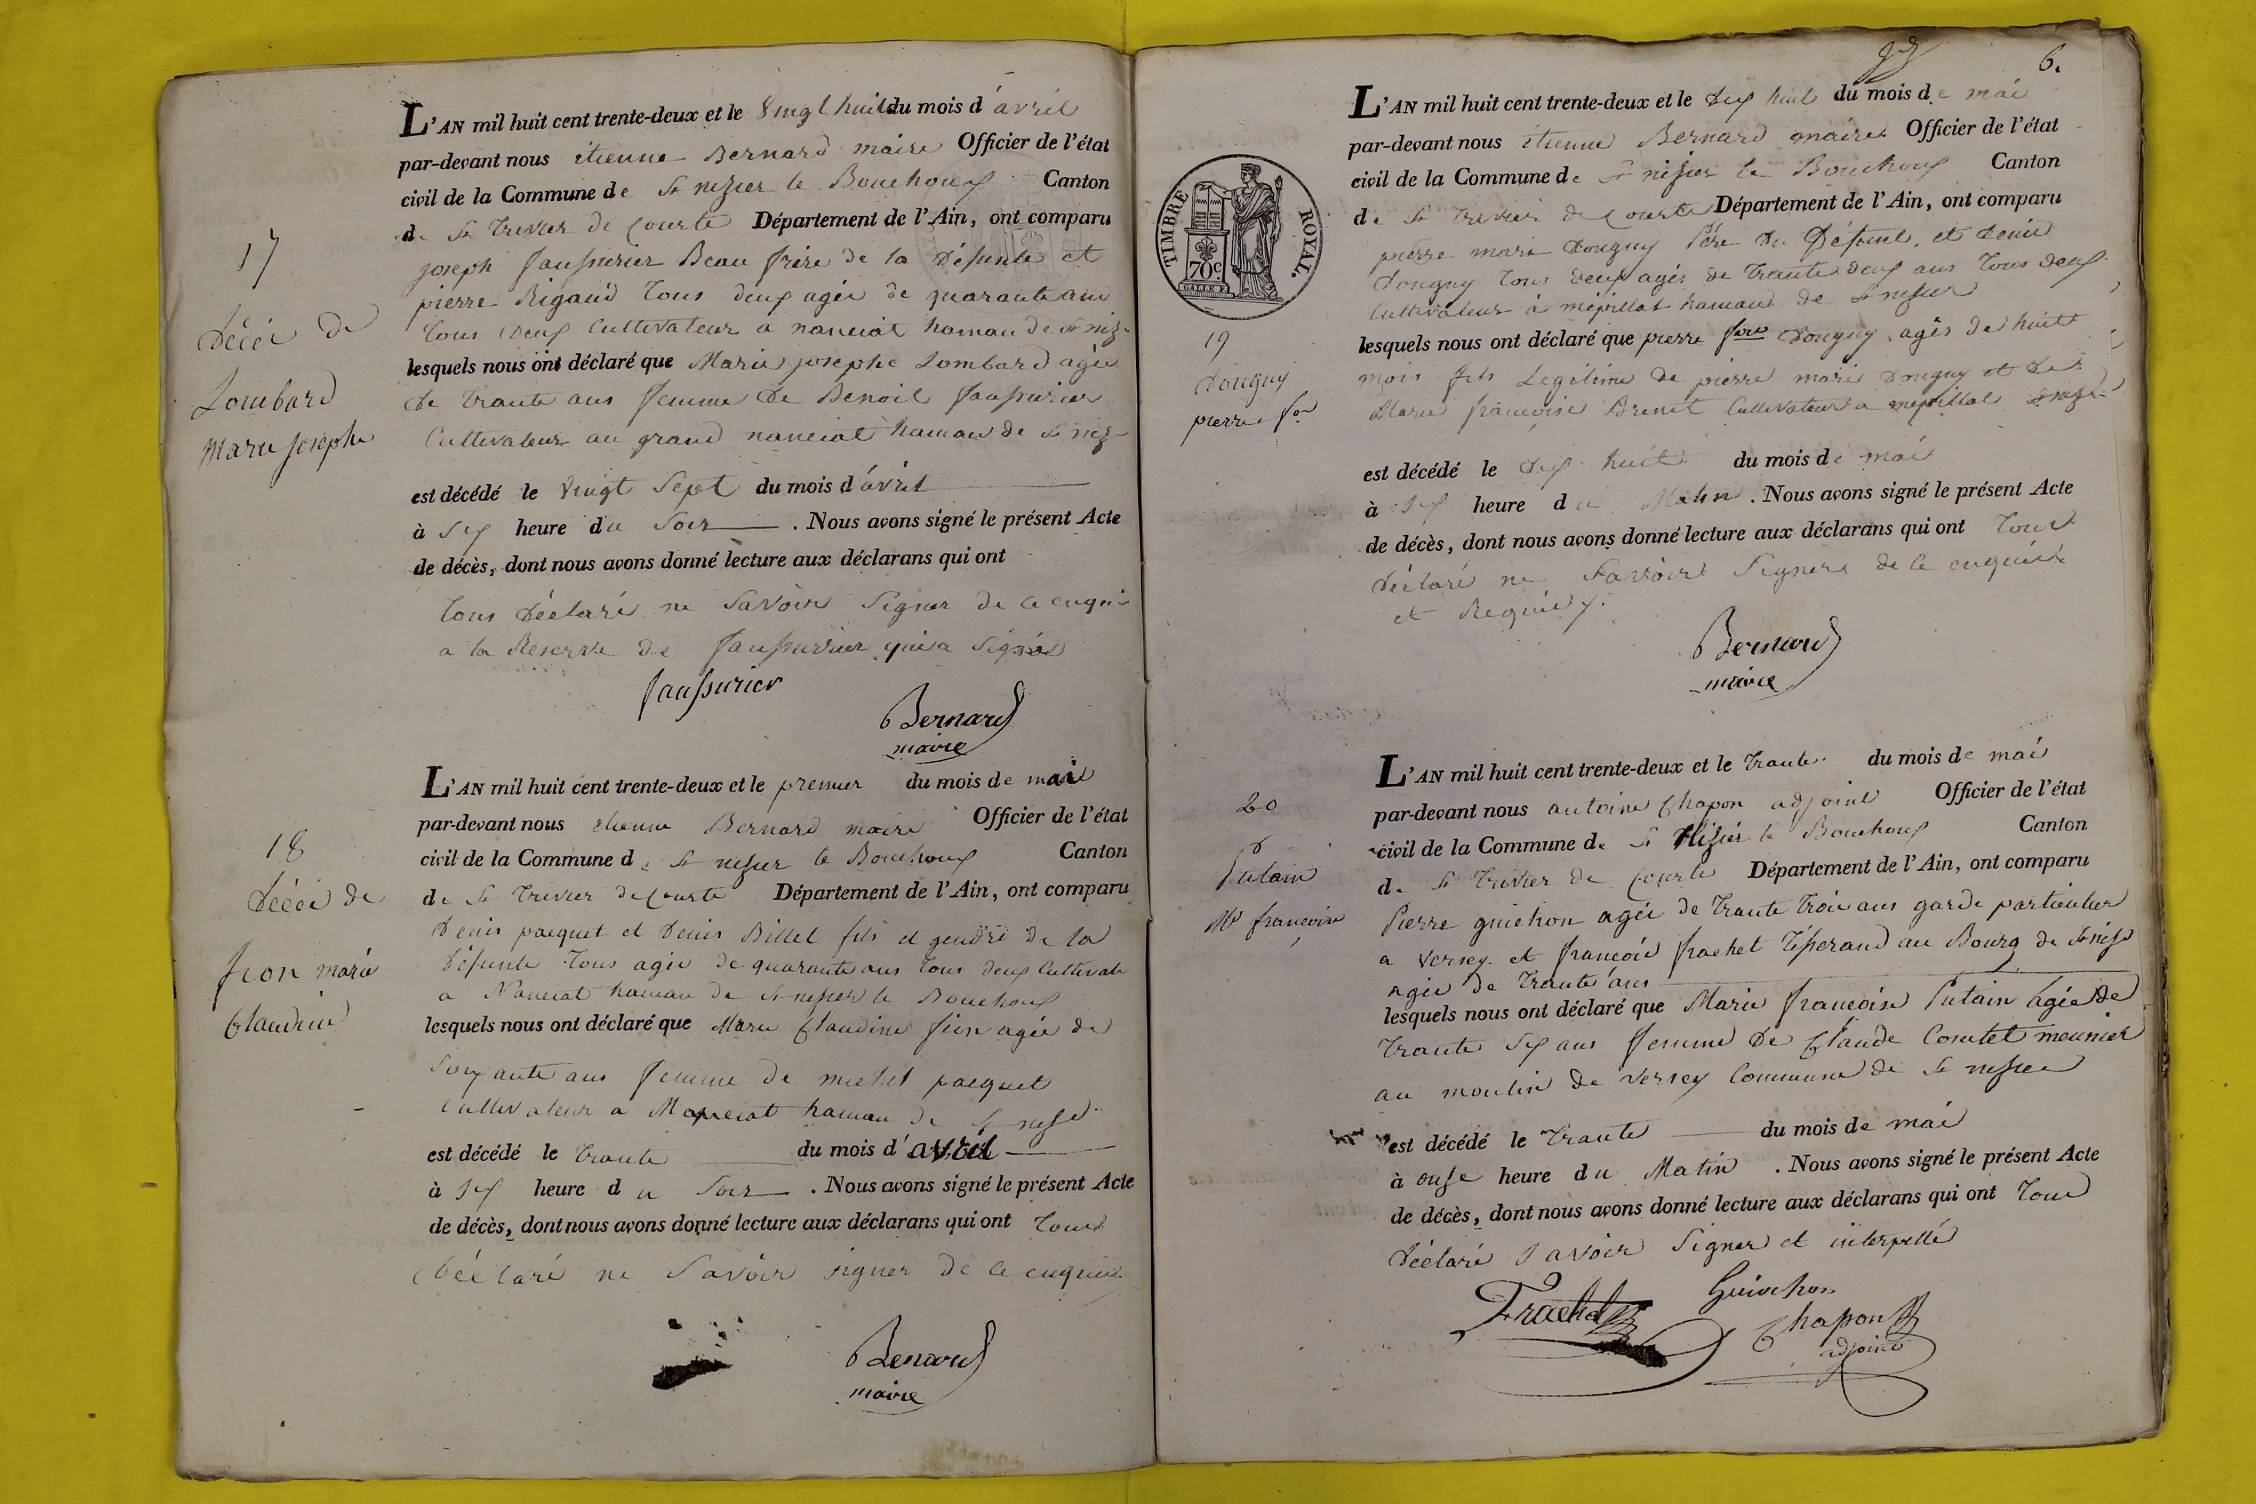 17
décéé de
Lombard
Marie josephe
L'AN mil huit cent trente-deux et le vingt huit du mois d'avril
par-devant nous étienne Bernard maire Officier de l'état
civil de la Commune de St nizier le Bouchoux Canton
de St Trivier de Courte Département de l'Ain, ont comparu
joseph faussurier Beau frère de la défunte et
pierre Rigaud tous deux agée de quarante ans
tous deux Cultivateur a nanciat hamau de St niz-
lesquels nous ont déclaré que Marie josephe Lombard agée
de trante ans femme de Benoit faussurier
Cultivateur au grand nanciat hamau de St niz-
est décédé le vingt Sept du mois d'avril
à Six heure du Soir. Nous avons signé le présent Acte
de décès, dont nous avons donné lecture aux déclarans qui ont
tous déclaré ne Savoir Signer de ce enqui-
a la Reserve de faussurier qui a Signé
faussurier
Bernard
maire
18
décéé de
fion marie
Claudine
L'AN mil huit cent trente-deux et le premier du mois de mai
par-devant nous etienne Bernard maire Officier de l'état
civil de la Commune de St nizier le Bouchoux Canton
de St Trivier de Courte Département de l'Ain, ont comparu
Denis pacquet et Denis Billet fils et gendre de la
défunte tous agée de quarante ans tous deux Cultivate
a Nanciat hamau de St nizier le Bouchoux
lesquels nous ont déclaré que Marie Claudine fion agée de
Soixante ans femme de michel pacquet
Cultivateur a Nanciat hamau de St nisie
est décédé le trante du mois d'avril
à Six heure du Soir. Nous avons signé le présent Acte
de décès, dont nous avons donné lecture aux déclarans qui ont tous
déclaré ne Savoir signer de ce enquis
Bernard
maire
6.
TIMBRE ROYAL.
70c
19
dougny
pierre for
L'AN mil huit cent trente-deux et le dix huit du mois de mai
par-devant nous étienne Bernard maire Officier de l'état
civil de la Commune de St nizier le Bouchoux Canton
de St Trivier de Courte Département de l'Ain, ont comparu
pierre marie dougny Père du Défunt, et denis
dougny tous deux agés de trante deux ans tous deux
Cultivateur à mépillat hamau de St nizier
lesquels nous ont déclaré que pierre dougny agés de huit
mois fils Legitime de pierre marie dougny et de
Marie francoise Brenet Cultivateur a mépillat
est décédé le dix huit du mois de mai
à Six heure du Matin. Nous avons signé le présent Acte
de décès, dont nous avons donné lecture aux déclarans qui ont tous
déclaré ne Savoir Signer de ce enquis
et Requis
Bernard
maire
20
Putain
Me francoise
L'AN mil huit cent trente-deux et le trante du mois de mai
par-devant nous antoine Chapon adjoint Officier de l'état
civil de la Commune de St Nizier le Bouchoux Canton
de St Trivier de Courte Département de l'Ain, ont comparu
Pierre guichon agée de trante trois ans garde particulier
a versey et francois frachet tisserand au Bourg de St nisie
agée de trante ans
lesquels nous ont déclaré que Marie francoise Putain agée de
trante Six ans femme de Claude Comtet meunier
au moulin de versey Commune de St nizier
est décédé le trante du mois de mai
à onse heure du Matin. Nous avons signé le présent Acte
de décès, dont nous avons donné lecture aux déclarans qui ont tous
déclaré Savoir Signer et interpellé
Frachet
Guichon
Chapon
adjoint